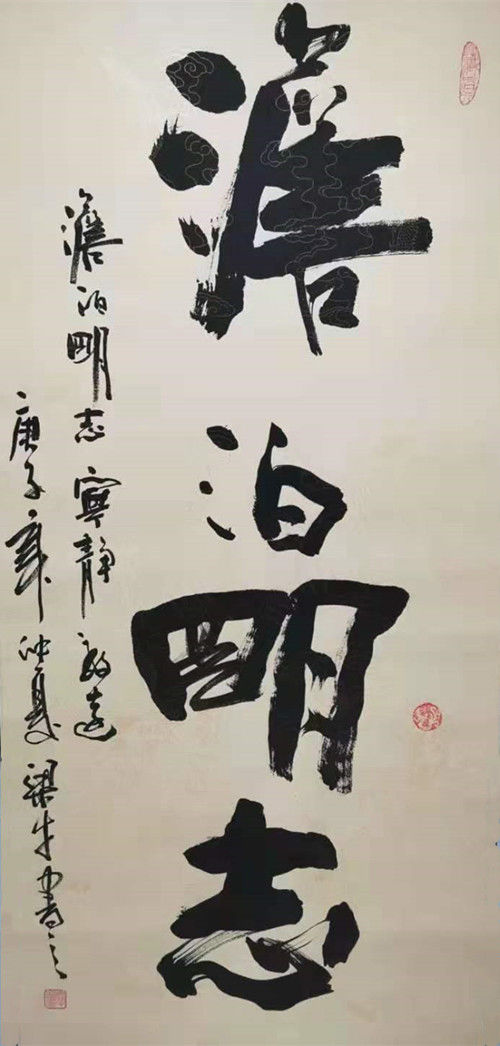 澹泊明志
澹泊明志寧靜致遠
庚子年仲夏梁牛書之